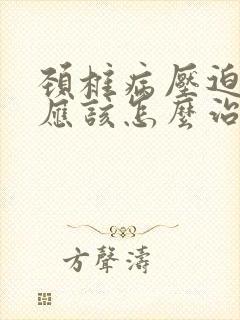 頚椎病壓迫
應該怎麼治
方聲濤